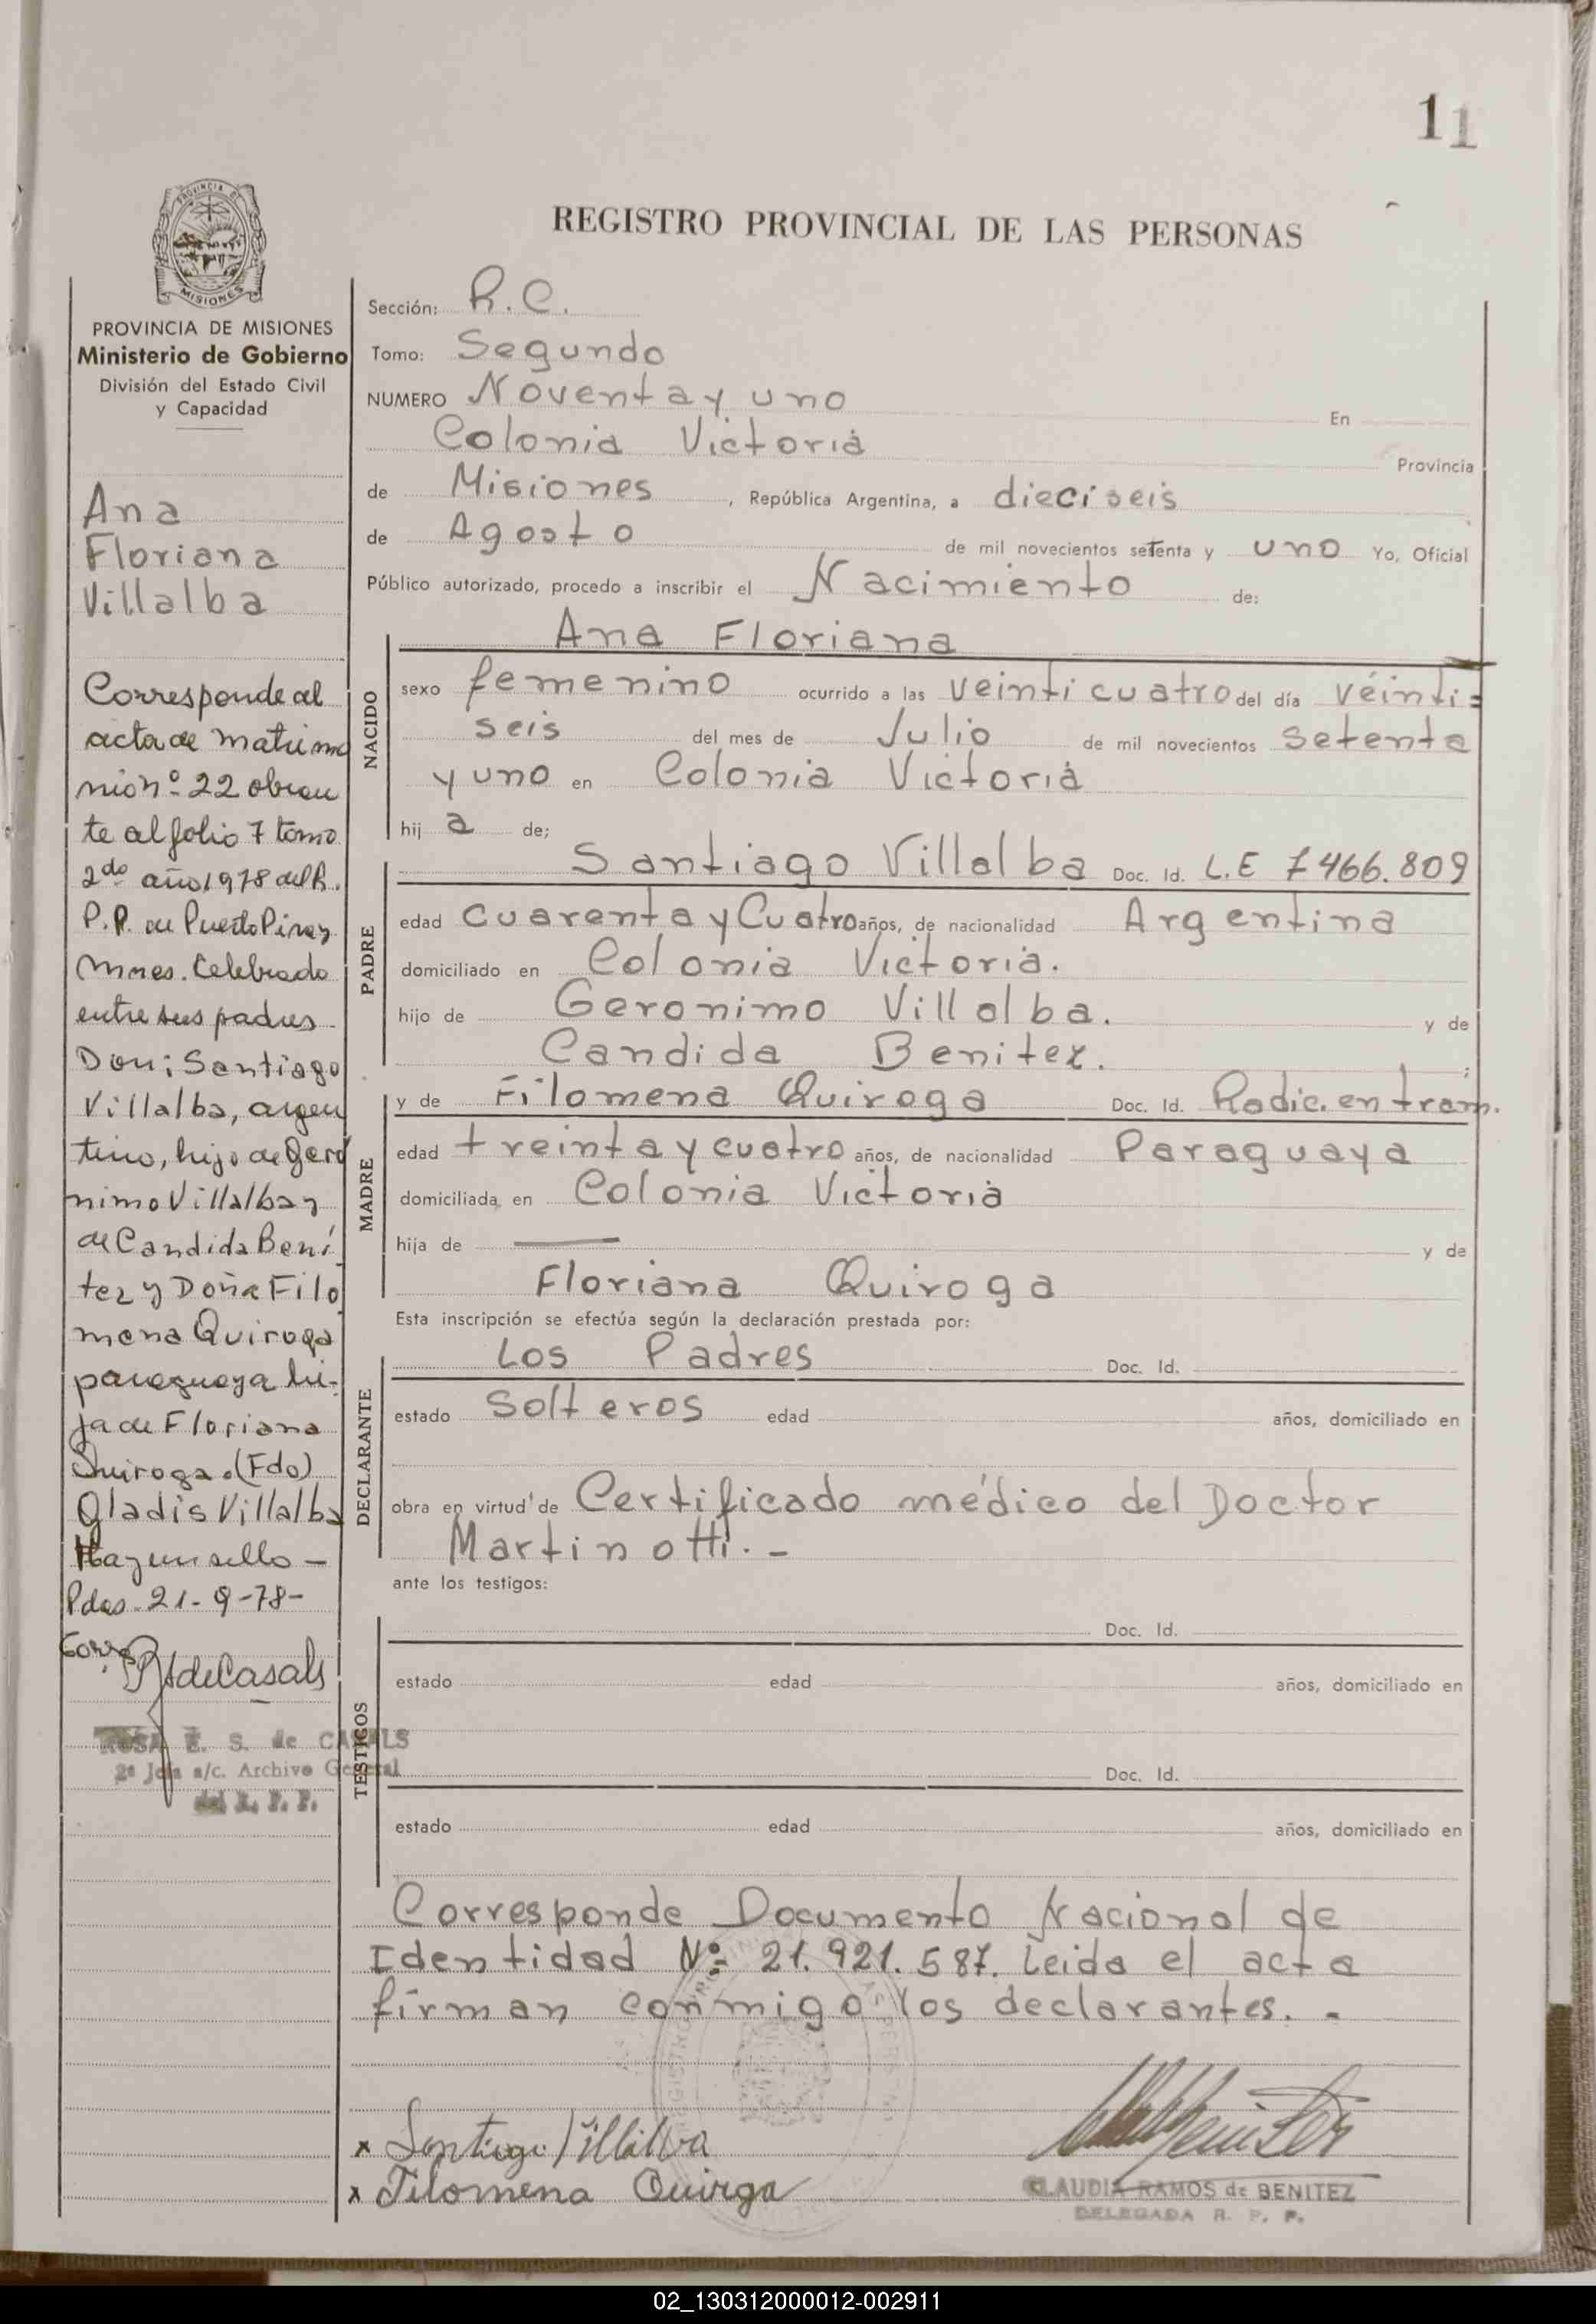 11
REGISTRO PROVINCIAL DE LAS PERSONAS
PROVINCIA DE
MISIONES
PROVINCIA DE MISIONES
Ministerio de Gobierno
División del Estado Civil
y Capacidad
Ana
Floriana
Villalba
Corresponde al
acta de matrimo
nio nº 22 obran
te al folio 7 tomo
2do año 1978 del R.
P.P. de Puerto Piray
Mnes. Celebrado
entre sus padres
Don: Santiago
Villalba, argen
tino, hijo de Gero
nimo Villalba y
de Candida Bení
tez y Doña Filo
mena Quiroga
paraguaya hi-
ja de Floriana
Quiroga. (Fdo)
Gladis Villalba
Hay un sello -
Pdas. 21-9-78-
RSdeCasals
ROSA E. S. de CASALS
2ª Jefa a/c. Archivo General
del R. P. P.
Sección: R.C.
Tomo: Segundo
NUMERO Noventa y uno En
Colonia Victoria Provincia
de Misiones, República Argentina, a dieciseis
de Agosto de mil novecientos setenta y uno Yo, Oficial
Público autorizado, procedo a inscribir el Nacimiento de:
NACIDO
Ana Floriana
sexo femenino ocurrido a las veinticuatro del día veinti=
seis del mes de Julio de mil novecientos setenta
y uno en Colonia Victoria
hij a de;
PADRE
Santiago Villalba Doc. Id. L.E 7466.809
edad Cuarenta y Cuatro años, de nacionalidad Argentina
domiciliado en Colonia Victoria.
hijo de Geronimo Villalba. y de
Candida Benitez. ;
MADRE
y de Filomena Quiroga Doc. Id. Radic. en tram.
edad treinta y cuatro años, de nacionalidad Paraguaya
domiciliada en Colonia Victoria
hija de —— y de
Floriana Quiroga
Esta inscripción se efectúa según la declaración prestada por:
DECLARANTE
Los Padres Doc. Id.
estado Solteros edad años, domiciliado en
obra en virtud de Certificado médico del Doctor
Martinotti. -
ante los testigos:
TESTIGOS
Doc. Id.
estado edad años, domiciliado en
Doc. Id.
estado edad años, domiciliado en
Corresponde Documento Nacional de
Identidad Nº 21.921.587. Leida el acta
firman conmigo los declarantes. -
x Santiago Villalva
x Filomena Quirga
CLAUDIA RAMOS de BENITEZ
DELEGADA R. P. P.
02_130312000012-002911